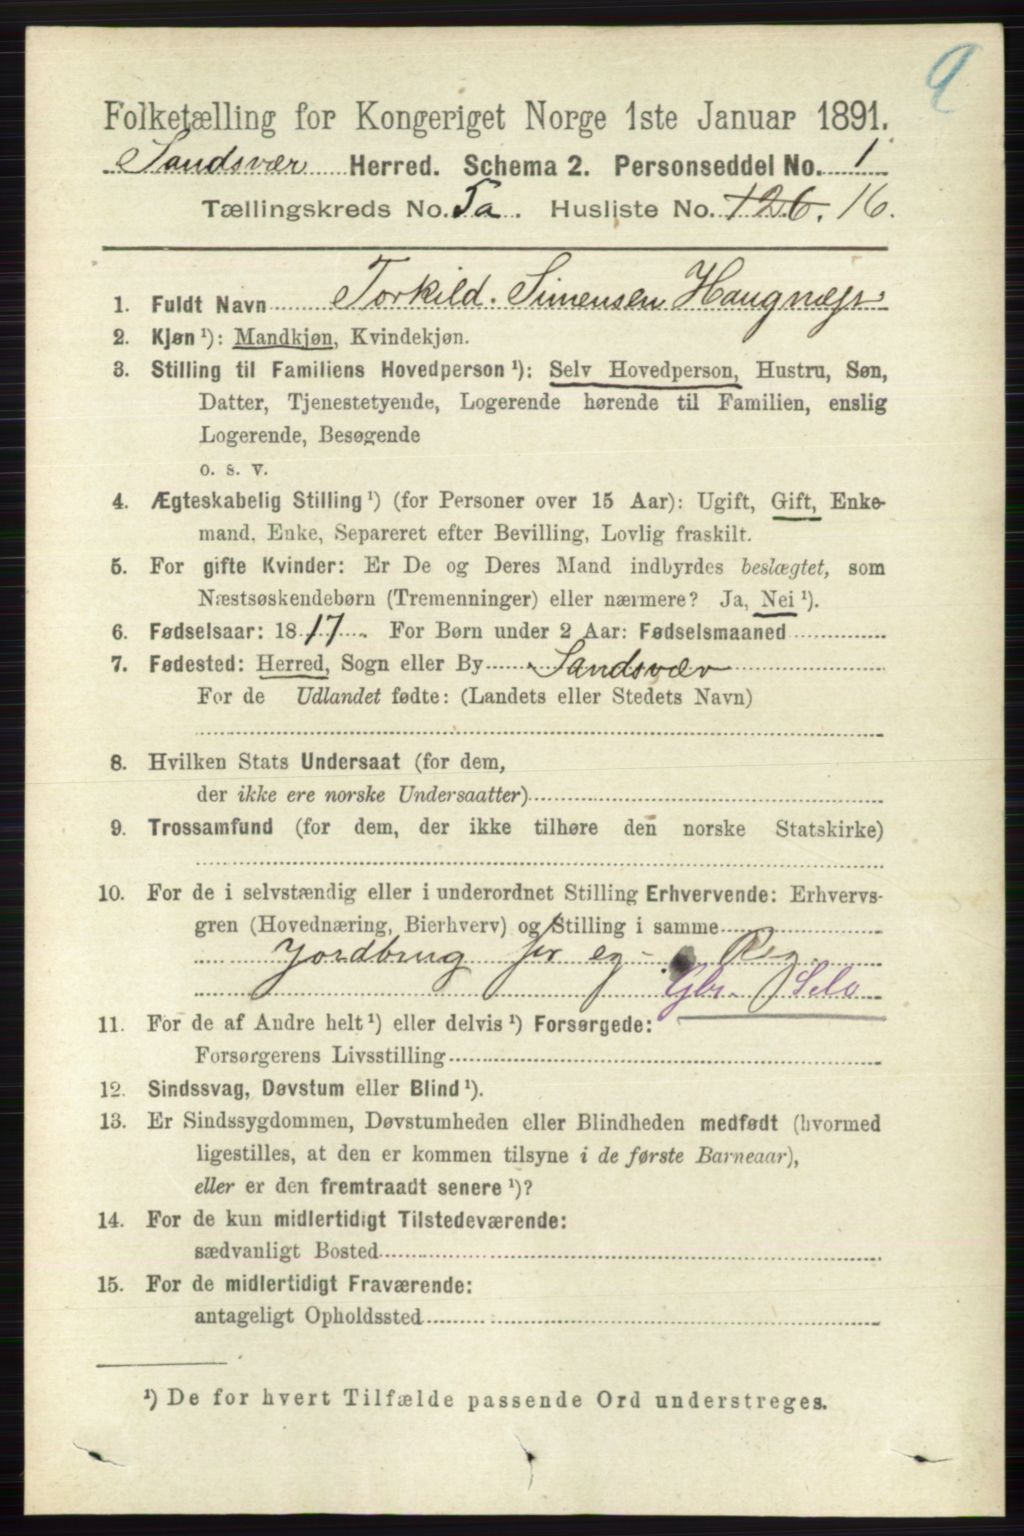 9
Folketælling for Kongeriget Norge 1ste Januar 1891.
Sandsvær Herred. Schema 2. Personseddel No. 1
Tællingskreds No. 5a. Husliste No. 126. 16.
1. Fuldt Navn Torkild. Simensen
2. Kjøn ¹): Mandkjøn, Kvindekjøn.
3. Stilling til Familiens Hovedperson ¹): Selv Hovedperson, Hustru, Søn,
Datter, Tjenestetyende, Logerende hørende til Familien, enslig
Logerende, Besøgende
o. s. v.
4. Ægteskabelig Stilling ¹) (for Personer over 15 Aar): Ugift, Gift, Enke-
mand, Enke, Separeret efter Bevilling, Lovlig fraskilt.
5. For gifte Kvinder: Er De og Deres Mand indbyrdes beslægtet, som
Næstsøskendebørn (Tremenninger) eller nærmere? Ja, Nei ¹).
6. Fødselsaar: 1817. For Børn under 2 Aar: Fødselsmaaned
7. Fødested: Herred, Sogn eller By Sandsvær
For de Udlandet fødte: (Landets eller Stedets Navn)
8. Hvilken Stats Undersaat (for dem,
der ikke ere norske Undersaatter)
9. Trossamfund (for dem, der ikke tilhøre den norske Statskirke)
10. For de i selvstændig eller i underordnet Stilling Erhvervende: Erhvervs-
gren (Hovednæring, Bierhverv) og Stilling i samme
Jordbrug for eg- Reg.
Gbr. Selv
11. For de af Andre helt ¹) eller delvis ¹) Forsørgede:
Forsørgerens Livsstilling
12. Sindssvag, Døvstum eller Blind ¹).
13. Er Sindssygdommen, Døvstumheden eller Blindheden medfødt (hvormed
ligestilles, at den er kommen tilsyne i de første Barneaar),
eller er den fremtraadt senere ¹)?
14. For de kun midlertidigt Tilstedeværende:
sædvanligt Bosted
15. For de midlertidigt Fraværende:
antageligt Opholdssted
¹) De for hvert Tilfælde passende Ord understreges.